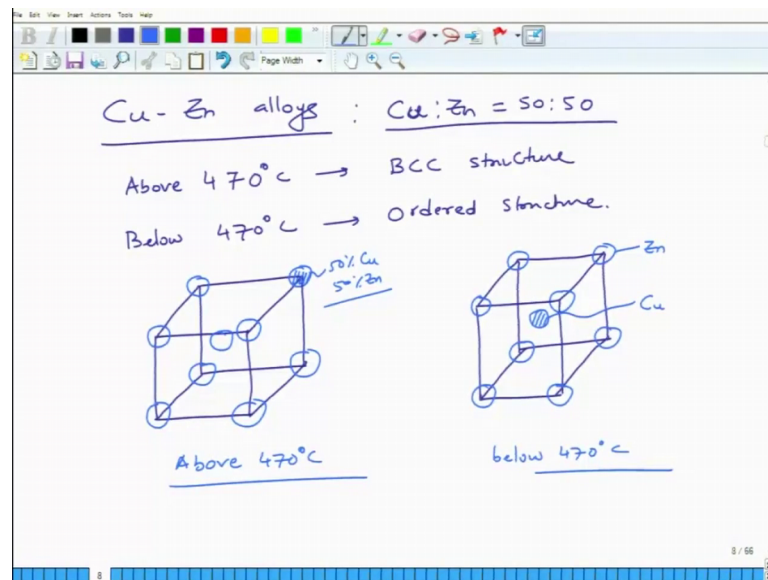 File Edit View Insert Actions Tools Help
B I
Page Width
Cu-Zn alloys : Cu:Zn = 50:50
Above 470°C → BCC structure
Below 470°C → Ordered structure.
50% Cu
50% Zn
Zn
Cu
Above 470°C
below 470°C
8 / 66
8